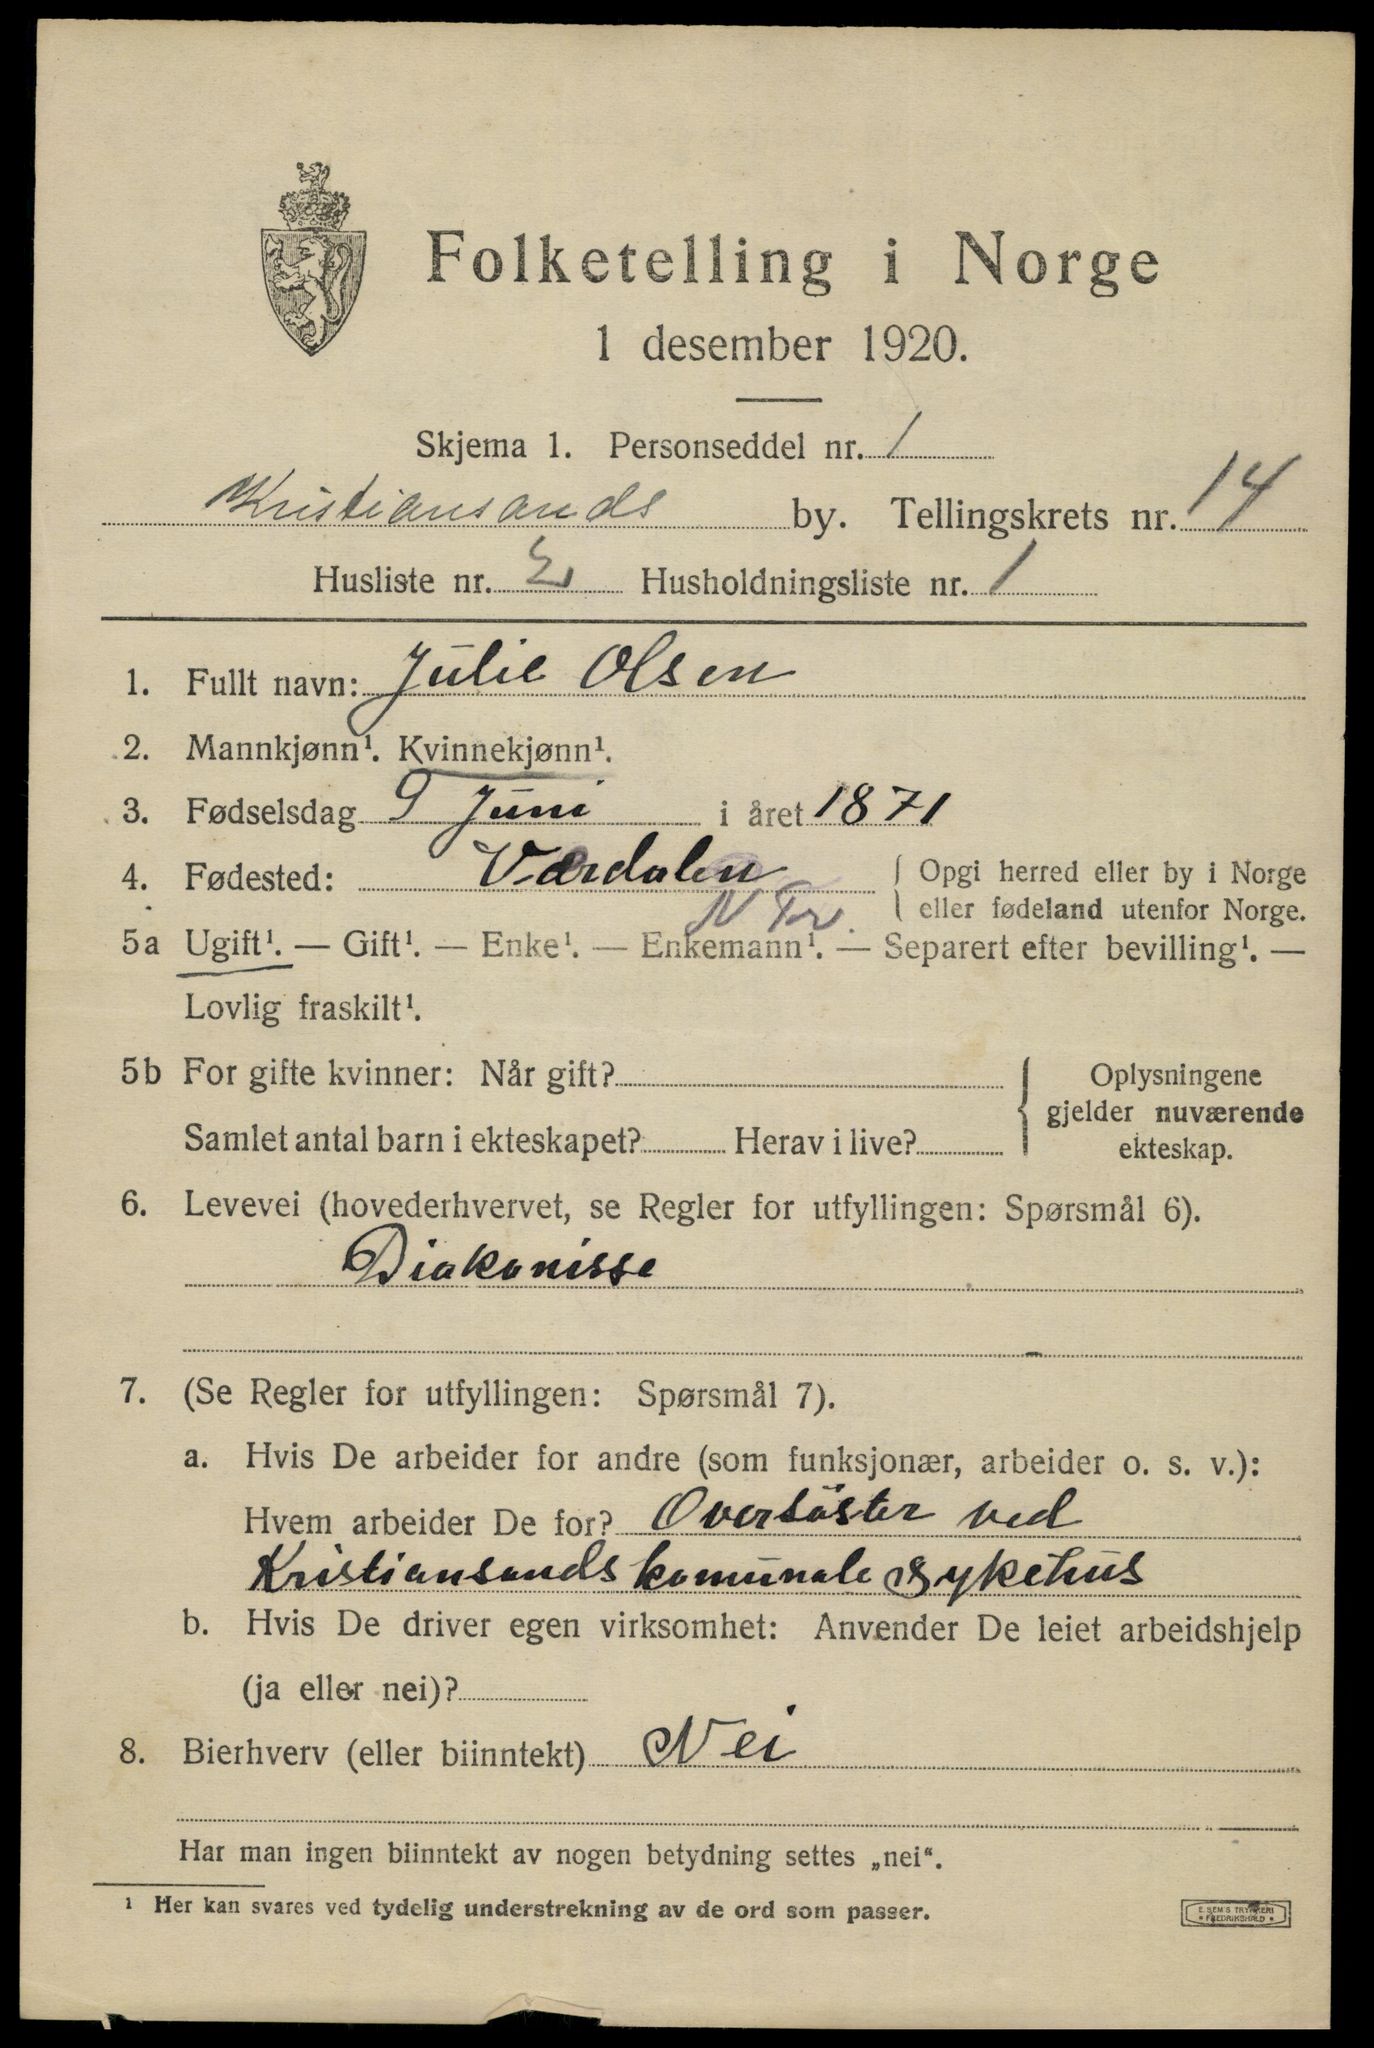 Folketelling i Norge
1 desember 1920.
Skjema 1. Personseddel nr. 1
Kristiansands by. Tellingskrets nr. 14
Husliste nr. 2 Husholdningsliste nr. 1
1. Fullt navn: Julie Olsen
2. Mannkjønn¹. Kvinnekjønn¹.
3. Fødselsdag 9 Juni i året 1871
4. Fødested: Værdalen { Opgi herred eller by i Norge
N Tr. eller fødeland utenfor Norge.
5a Ugift¹. — Gift¹. — Enke¹. — Enkemann¹. — Separert efter bevilling¹. —
Lovlig fraskilt¹.
5b For gifte kvinner: Når gift? { Oplysningene
gjelder nuværende
Samlet antal barn i ekteskapet? Herav i live? ekteskap.
6. Levevei (hovederhvervet, se Regler for utfyllingen: Spørsmål 6).
Diakonisse
7. (Se Regler for utfyllingen: Spørsmål 7).
a. Hvis De arbeider for andre (som funksjonær, arbeider o. s. v.):
Hvem arbeider De for? Oversöster ved
Kristiansands komunale sykehus
b. Hvis De driver egen virksomhet: Anvender De leiet arbeidshjelp
(ja eller nei)?
8. Bierhverv (eller biinntekt) Nei
Har man ingen biinntekt av nogen betydning settes „nei“.
¹ Her kan svares ved tydelig understrekning av de ord som passer.
E. SEM'S TRYKKERI
FREDRIKSHALD